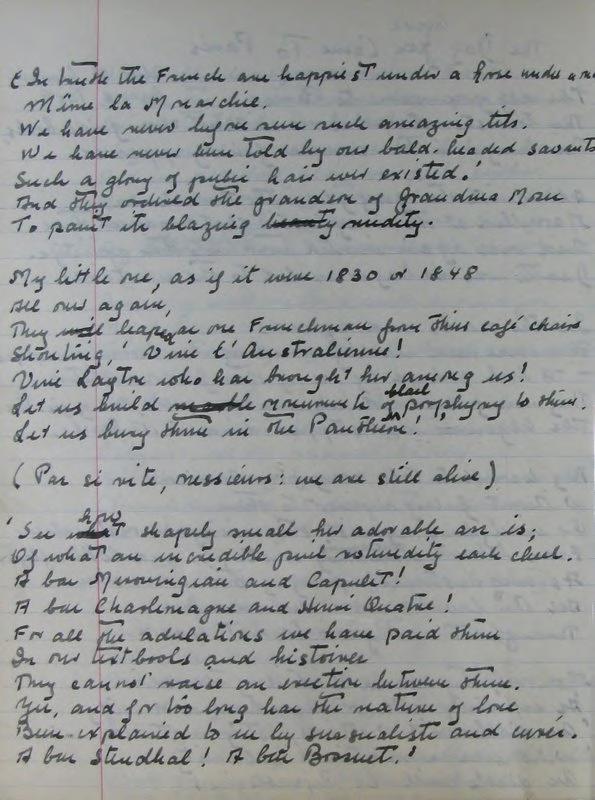 & In truth the French are happiest under a
Même la Monarchie.
We have never before seen such amazing tits.
We have never been told by our bald-headed savants
Such a glory of pubic hair ever existed.'
And they ordered the grandson of Grandma Moses
To paint its blazing beauty nudity.
My little one, as if it were 1830 or 1848
All over again,
They will leaped as one Frenchman from their café chairs
Shouting, 'Vive l'Australienne!
Vive Layton who has brought her among us!
Let us build monuments of black porphyry to them.
Let us bury them in the Panthéon!'
(Pas si vite, messieurs: we are still alive)
'See what how shapely small her adorable ass is;
Of what an incredible pink rotundity each cheek.
A bas Merovingian and Capulet!
A bas Charlemagne and Henri Quatre!
For all the adulations we have paid them
In our textbooks and histoires
They cannot raise an erection between them.
Yes, and for too long has the nature of love
Been explained to us by sensualists and curés.
A bas Stendhal! A bas Bossuet.'